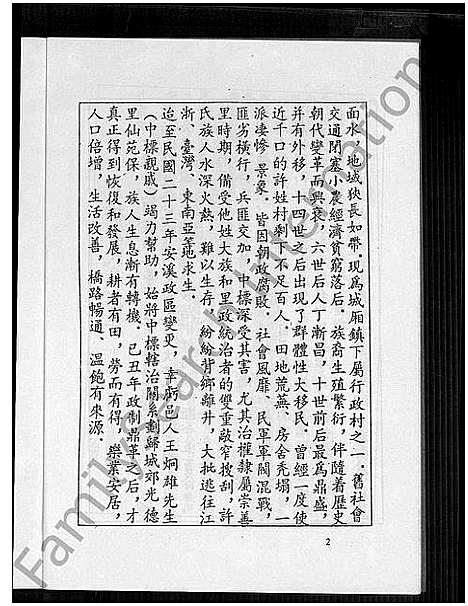 面水，地域狹長如帶．現爲城厢鎮下屬行政村之一．舊社會
交通閉塞小農經濟貧窮落后．族裔生殖繁衍，伴隨着歷史
朝代變革而興衰．六世后人丁漸昌，十世前后最爲鼎盛，
并有外移，十四世之后出現了群體性大移民．曾經一度使
近千口的許姓村剩下不足百人．田地荒蕪、房舍禿塌，一
派凄慘景象．皆因朝政腐敗、社會風靡、民軍軍閥混戰，
匪劣橫行，兵匪交加，中標深受其害，尤其治權隸屬崇善
里時期，備受他姓大族和里政統治者的雙重敲窄搜刮，許
氏族人水深火熱，難以生存．紛紛背鄉離井．大批逃往江
浙、臺灣、東南亞等地求生．
迨至民國二十三年安溪政區變更，幸虧邑人王炯雄先生
（中標親戚）竭力幫助，始將中標轄治關系劃歸城郊光德
里仙苑保．族人生息漸有轉機．己丑年政制鼎革之后，才
真正得到恢復和發展，耕者有田，勞而有得，樂業安居，
人口倍增，生活改善，橋路暢通、温飽有來源．
2
Family Search International